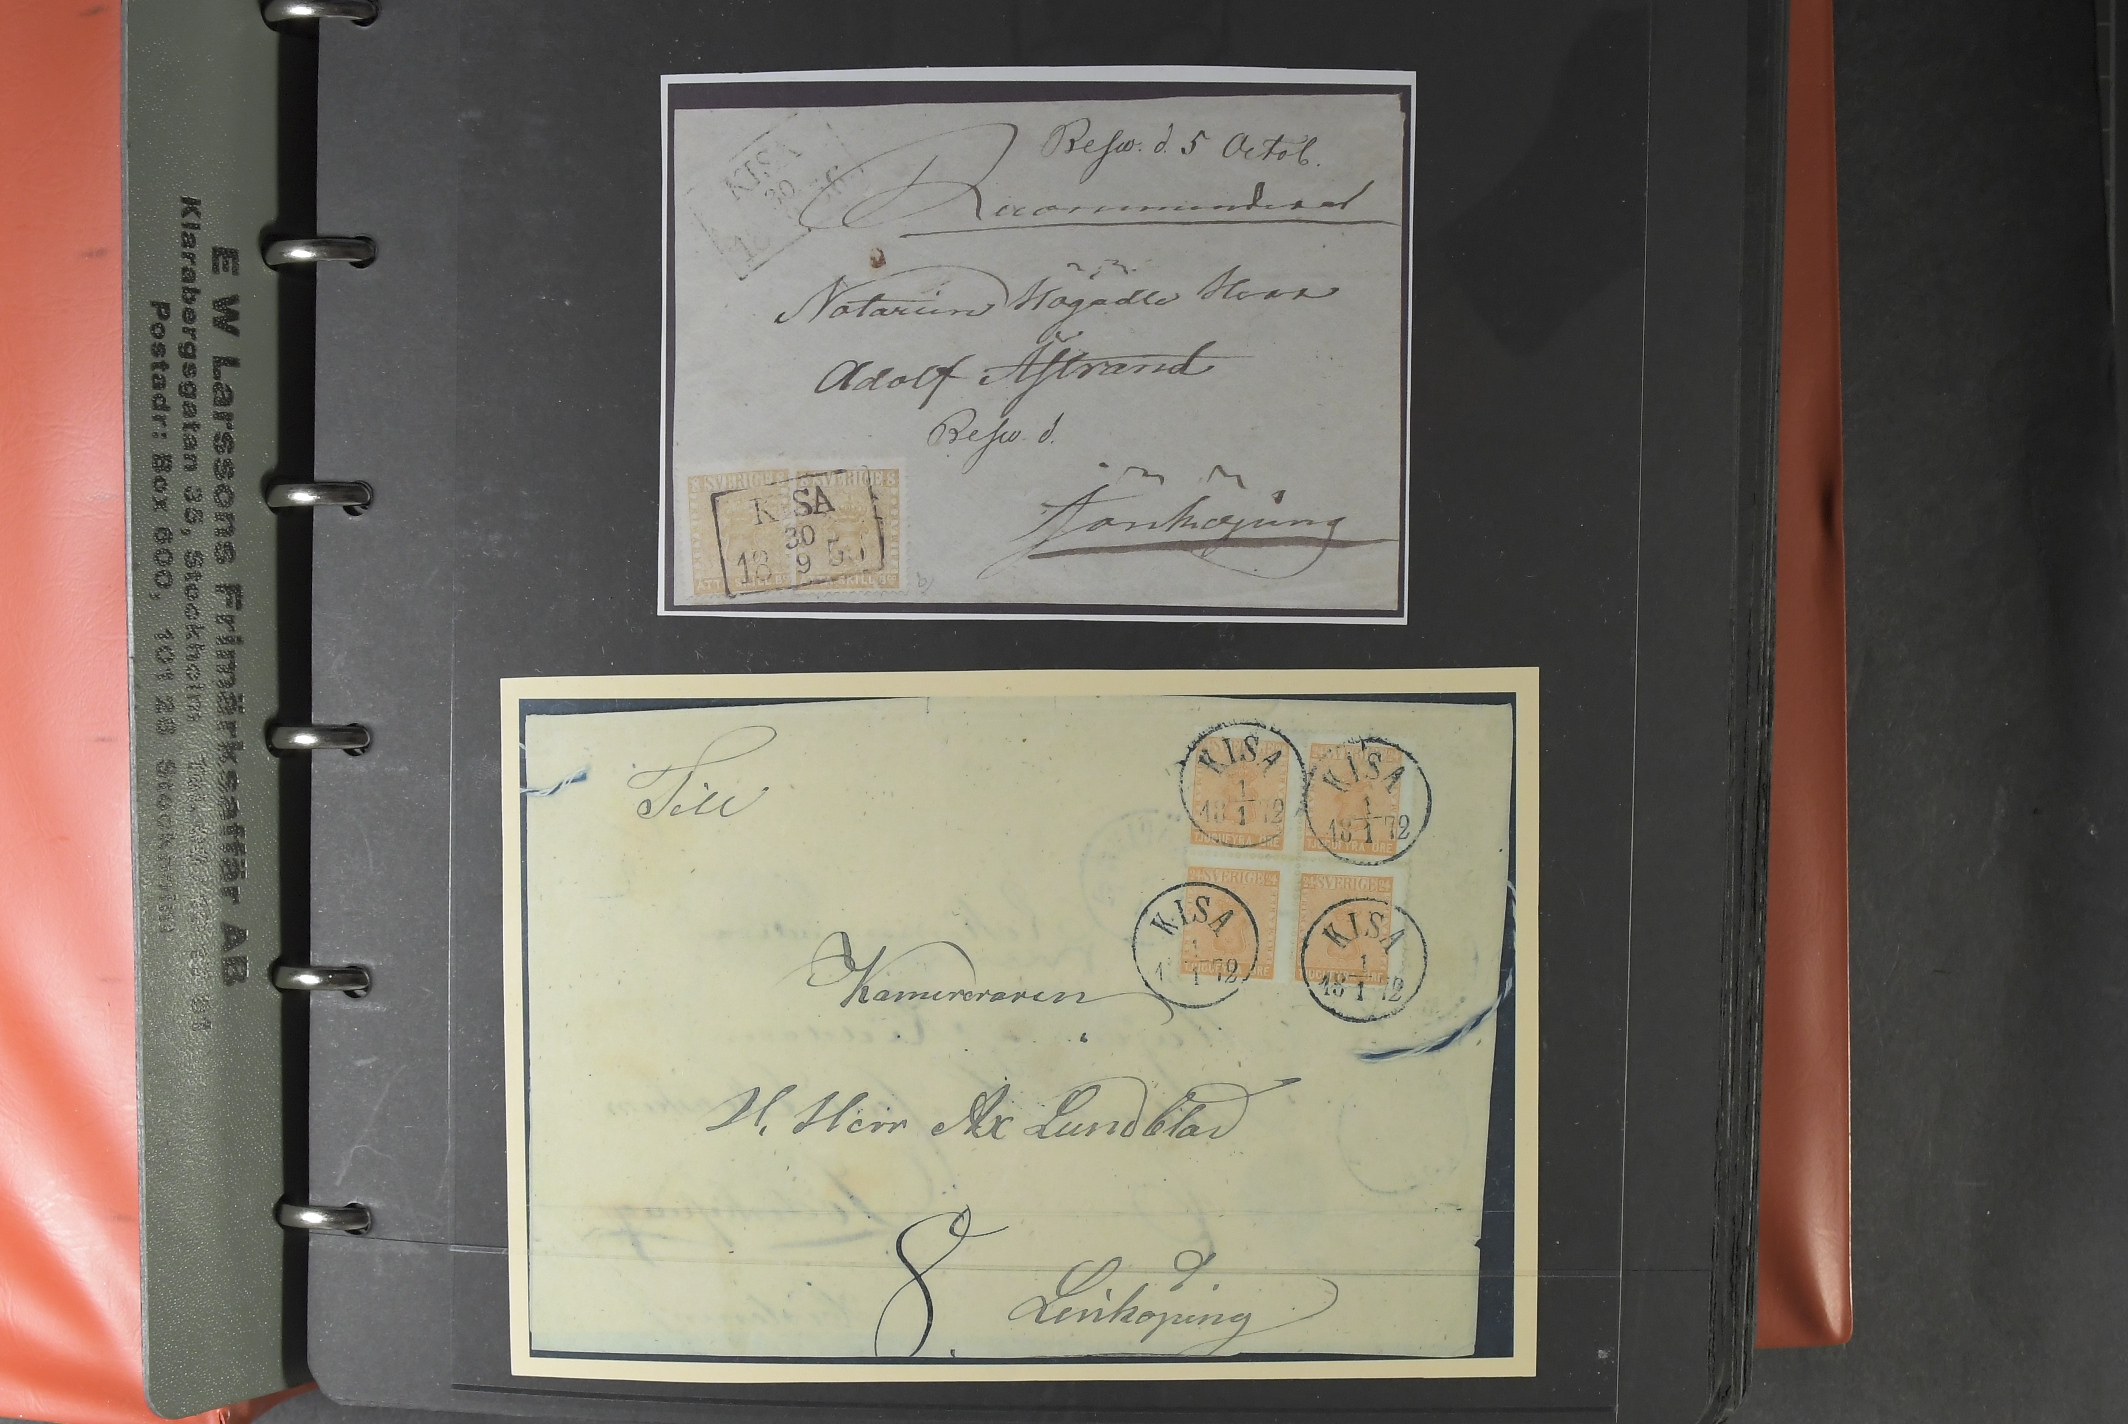 E W Larssons Frimärksaffär AB
Klarabergsgatan 38, Stockholm
Postadr: Box 600, 101 28 Stockholm
KISA
30
18
Resw. d. 5 Octob.
Recommenderad
Notarien Högädle Herr
Adolf Åstrand
Resw. d.
Jönköping
8 SVERIGE 8
SVERIGE 8
KISA
30
18 9 5
SKILL Bco
SKILL Bco
Till
KISA
1
18 1 72
TJUGUFYRA ÖRE
KISA
1
18 1 72
TJUGUFYRA ÖRE
24 SVERIGE 24
KISA
1
1 72
24 SVERIGE 24
KISA
1
18 1 72
Kamereraren
H. Herr Ax Lundblad
8
Linköping